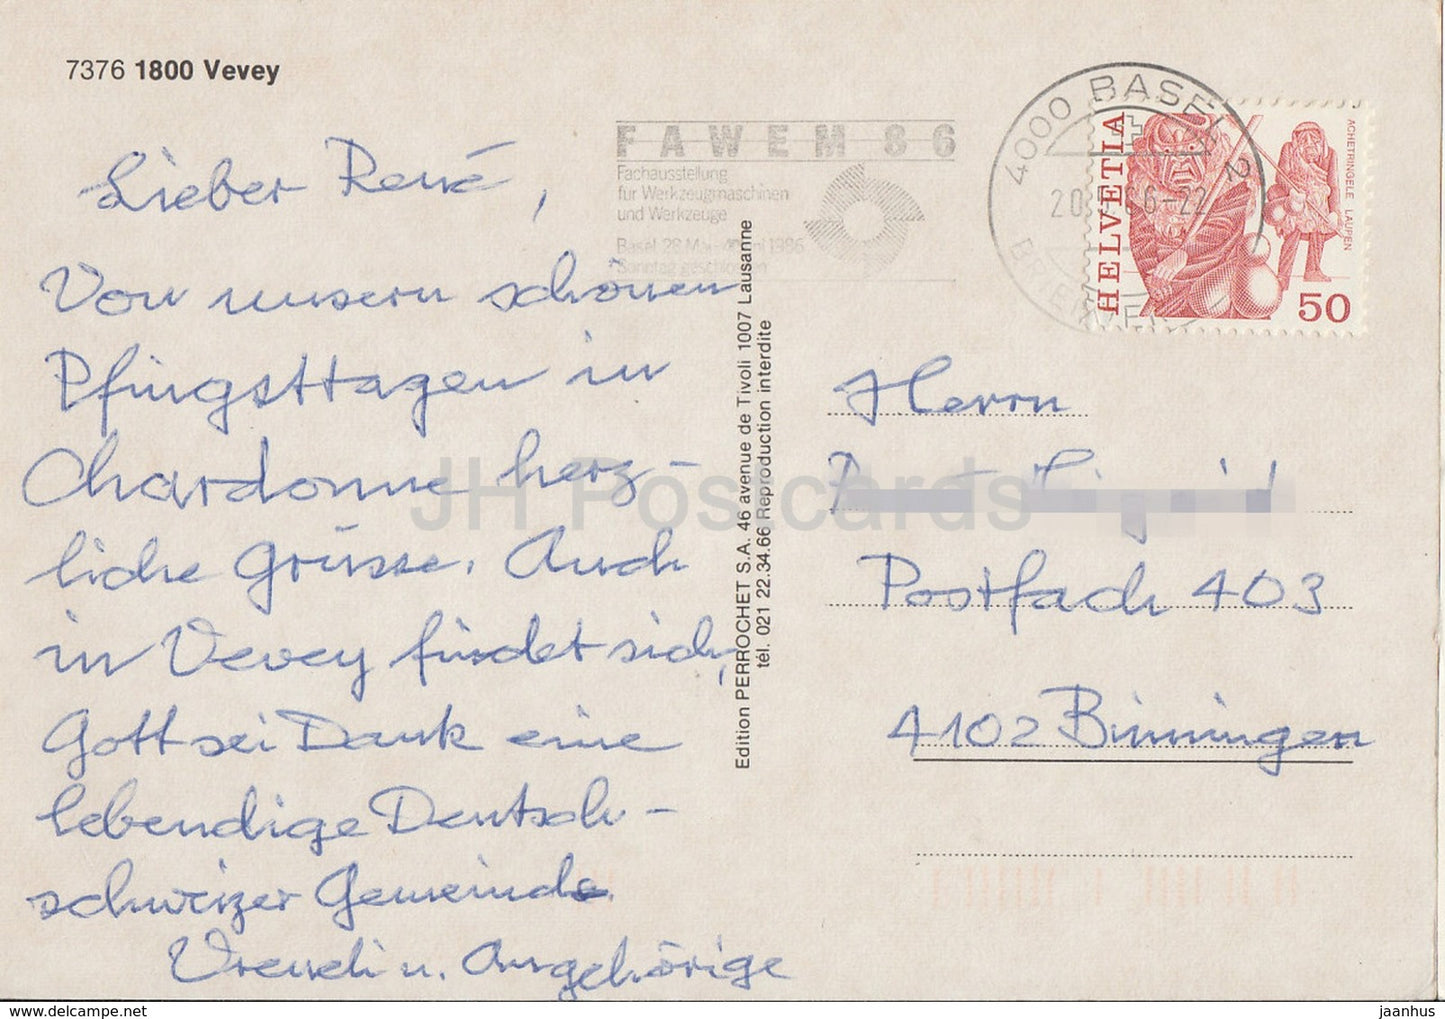 7376 1800 Vevey
Lieber René,
Von unsern schönen
Pfingsttagen in
Chardonne herz-
liche Grüsse. Auch
in Vevey findet sich,
Gott sei Dank eine
lebendige Deutsch-
schweizer Gemeinde.
Vreneli u. Angehörige
FAWEM 86
Fachausstellung
für Werkzeugmaschinen
und Werkzeuge
Basel 28 Mai-4Juni 1986
Sonntag geschlossen
4000 BASEL 2
HELVETIA
ACHETRINGELE LAUPEN
50
Edition PERROCHET S.A. 46 avenue de Tivoli 1007 Lausanne
tél. 021 22.34.66 Reproduction interdite
Herrn
Postfach 403
4102 Binningen
JH Postcards
www.delcampe.net
jaanhus